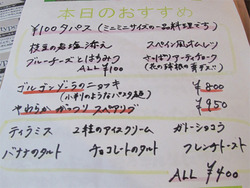 本日のおすすめ
¥100タパス (ミニミニサイズの一品料理たち)
枝豆の岩塩添え スペイン風オムレツ
ブルーチーズとはちみつ さっぱりアーティチョーク
ALL ¥100
ゴルゴンゾーラのニョッキ ¥800
(小判のようなパスタ麺)
やわらか がっつり スペアリブ ¥950
ティラミス 2種のアイスクリーム ガトーショコラ
バナナのタルト チョコレートのタルト フレンチトースト
ALL ¥400